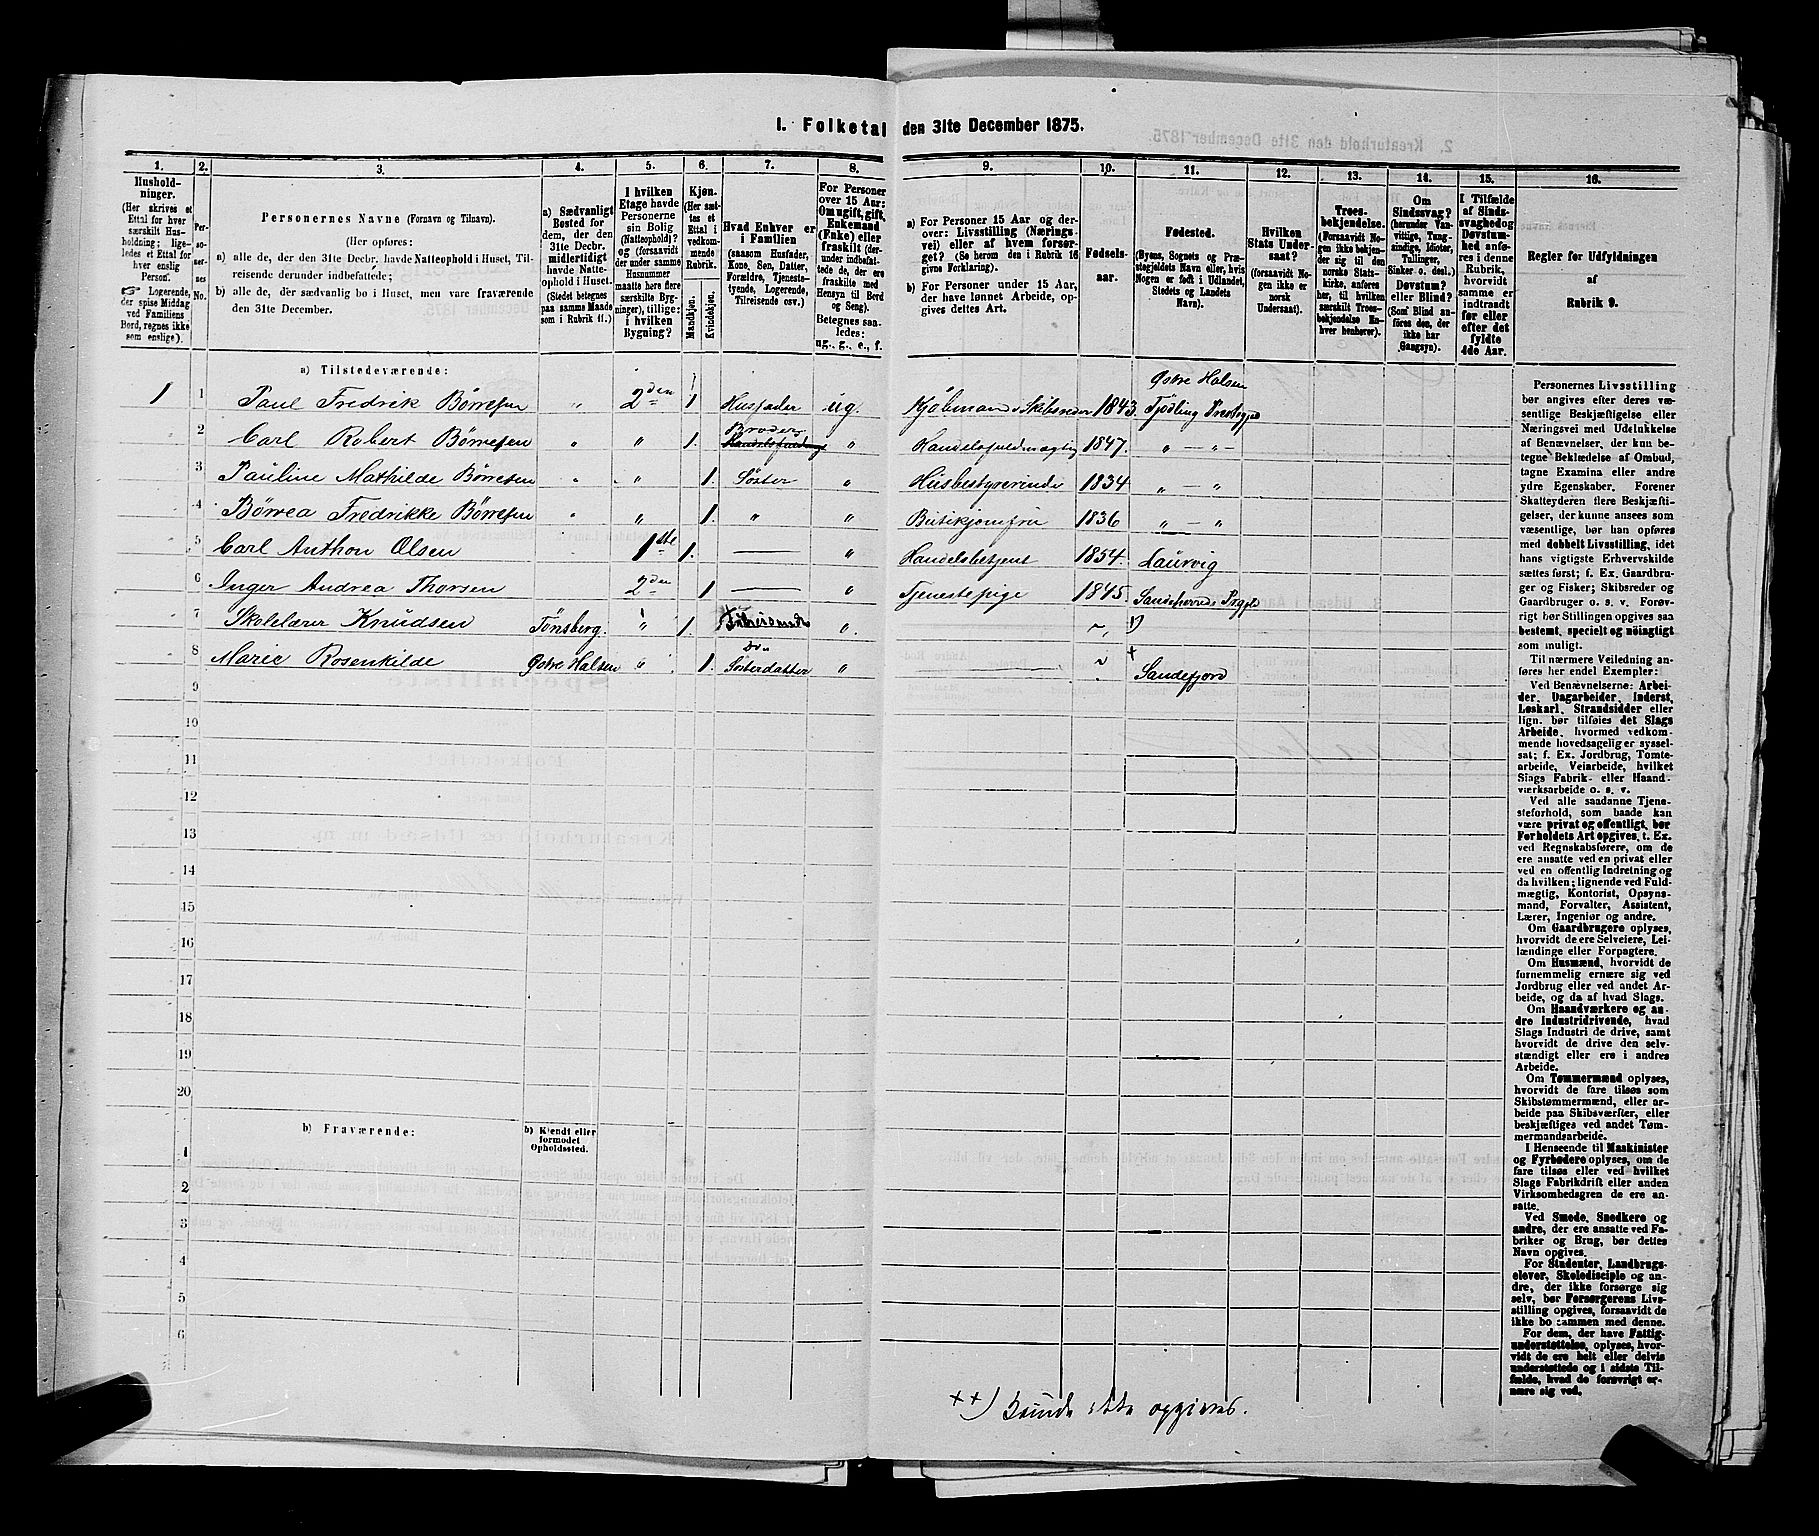 1. Folketal den 31te December 1875.
1. 2. 3. 4. 5. 6. 7. 8. 9. 10. 11. 12. 13. 14. 15. 16.
Husholdninger.
(Her skrives et
Ettal for hver
særskilt Husholdning;
ligeledes et Ettal for
hver enslig
Person.
☞ Logerende,
der spise Middag
ved Familiens
Bord, regnes ikke
som enslige).
Personernes No.
Personernes Navne (Fornavn og Tilnavn).
(Her opføres:
a) alle de, der den 31te Decbr. havde Natteophold i Huset, Tilreisende
derunder indbefattede;
b) alle de, der sædvanlig bo i Huset, men vare fraværende
den 31te December.
a) Sædvanligt
Bosted for
dem, der den
31te Decbr.
midlertidigt
havde Natteophold
i Huset.
(Stedet betegnes
paa samme Maade
som i Rubrik 11.)
I hvilken
Etage havde
Personerne
sin Bolig
(Natteophold)?
og (forsaavidt
der under samme
Husnummer
maatte høre flere
særskilte Bygninger),
tillige:
i hvilken
Bygning?
Kjøn.
(Her sættes
et
Ettal i
vedkommende
Rubrik.
Mandkjøn.
Kvindekjøn.
Hvad Enhver er
i Familien
(saasom Husfader,
Kone, Søn, Datter,
Forældre, Tjenestetyende,
Logerende,
Tilreisende osv.)
For Personer
over 15 Aar:
Om ugift, gift,
Enkemand
(Enke) eller
fraskilt (derunder
indbefattede
de, der ere
fraskilte med
Hensyn til Bord
og Seng).
Betegnes saaledes:
ug., g., e., f.
a) For Personer 15 Aar og derover:
Livsstilling (Næringsvei)
eller af hvem forsørget?
(Se herom den i Rubrik 16
givne Forklaring).
b) For Personer under 15 Aar,
der have lønnet Arbeide, opgives
dettes Art.
Fødselsaar.
Fødested.
(Byens, Sognets og Præstegjeldets
Navn eller, hvis
Nogen er født i Udlandet,
Stedets og Landets
Navn).
Hvilken
Stats Undersaat?
(forsaavidt Nogen
ikke er
norsk
Undersaat).
Troesbekjendelse.
(Forsaavidt Nogen
ikke bekjender
sig til den
norske Statskirke,
anføres
her, til hvilken
særskilt Troesbekjendelse
Enhver
henhører).
Om
Sindssvag?
(herunder Vanvittige,
Tungsindige,
Idioter,
Tullinger,
Sinker o. desl.)
Døvstum?
eller Blind?
(Som Blind anføres
den, der
ikke har
Gangsyn).
I Tilfælde
af Sindssvaghed
og
Døvstumhed
anføres
i denne
Rubrik,
hvorvidt
samme er
indtraadt
før eller
efter det
fyldte
4de Aar.
Regler for Udfyldningen
af
Rubrik 9.
a) Tilstedeværende:
Østre Halsen
1 1 Paul Fredrik Börresen " 2den 1 Husfader ug. Kjøbmand & Skibsreder 1843. Tjödling Prestegjd
Broder
2 Carl Robert Börresen " " 1. " Handelsfuldmægtig 1847. " — " —
3 Pauline Mathilde Börresen " " 1. Söster " Husbestyrerinde 1834 " — "
4 Börrea Fredrikke Börresen " " 1. " " Butikjomfru 1836 " — "
5 Carl Anthon Olsen 1ste 1. — " Handelsbetjent 1854. Laurvig
6 Inger Andrea Thorsen 2den 1 — " Tjenestepige 1845. Sandeherreds Prgjld
7 Skolelærer Knudsen Tönsberg. " 1. "
8 Marie Rosenkilde Østre Halsen " 1. Søsterdatter " Sandefjord
9
10
11
12
13
14
15
16
17
18
19
20
b) Fraværende:
b) Kjendt eller
formodet
Opholdssted.
1
2
3
4
5
6
Personernes Livsstilling
bør angives efter deres væsentlige
Beskjæftigelse eller
Næringsvei med Udelukkelse
af Benævnelser, der kun betegne
Beklædelse af Ombud,
tagne Examina eller andre
ydre Egenskaber. Forener
Skatteyderen flere Beskjæftigelser,
der kunne ansees som
væsentlige, bør han opføres
med dobbelt Livsstilling, idet
hans vigtigste Erhvervskilde
sættes først; f. Ex. Gaardbruger
og Fisker; Skibsreder og
Gaardbruger o. s. v. Forøvrigt
bør Stillingen opgives saa
bestemt, specielt og nöiagtigt
som muligt.
Til nærmere Veiledning anføres
her endel Exempler:
Ved Benævnelserne: Arbeider,
Dagarbeider, Inderst,
Løskarl, Strandsidder eller
lign. bør tilføies det Slags
Arbeide, hvormed vedkommende
hovedsagelig er sysselsat;
f. Ex. Jordbrug, Tomtearbeide,
Veiarbeide, hvilket
Slags Fabrik- eller Haandværksarbeide
o. s. v.
Ved alle saadanne Tjenesteforhold,
som baade kan
være privat og offentligt, bør
Forholdets Art opgives, t. Ex.
ved Regnskabsførere, om de
ere ansatte ved en privat eller
ved en offentlig Indretning og
da hvilken; lignende ved Fuldmægtig,
Kontorist, Opsynsmand,
Forvalter, Assistent,
Lærer, Ingeniør og andre.
Om Gaardbrugere oplyses,
hvorvidt de ere Selveiere, Leilændinge
eller Forpagtere.
Om Husmænd, hvorvidt de
fornemmelig ernære sig ved
Jordbrug eller ved andet Arbeide,
og da af hvad Slags.
Om Haandværkere og andre
Industridrivende, hvad
Slags Industri de drive, samt
hvorvidt de drive den selvstændigt
eller ere i andres
Arbeide.
Om Tømmermænd oplyses,
hvorvidt de fare tilsøs som
Skibstømmermænd, eller arbeide
paa Skibsværfter, eller
beskjæftiges ved andet Tømmermandsarbeide.
I Henseende til Maskinister
og Fyrbødere oplyses, om de
fare tilsøs eller ved hvilket
Slags Fabrikdrift eller anden
Virksomhedsgren de ere ansatte.
Ved Smede, Snedkere og
andre, der ere ansatte ved Fabriker
og Brug, bør dettes
Navn opgives.
For Studenter, Landbrugselever,
Skoledisciple og andre,
der ikke forsørge sig
selv, bør Forsørgerens Livsstilling
opgives, forsaavidt de
ikke bo sammen med denne.
For dem, der have Fattigunderstøttelse,
oplyses, hvorvidt
de ere helt eller delvis
understøttede og i sidste Tilfælde,
hvad de forøvrigt ernære
sig ved.
++) Kunde ikke opgives.